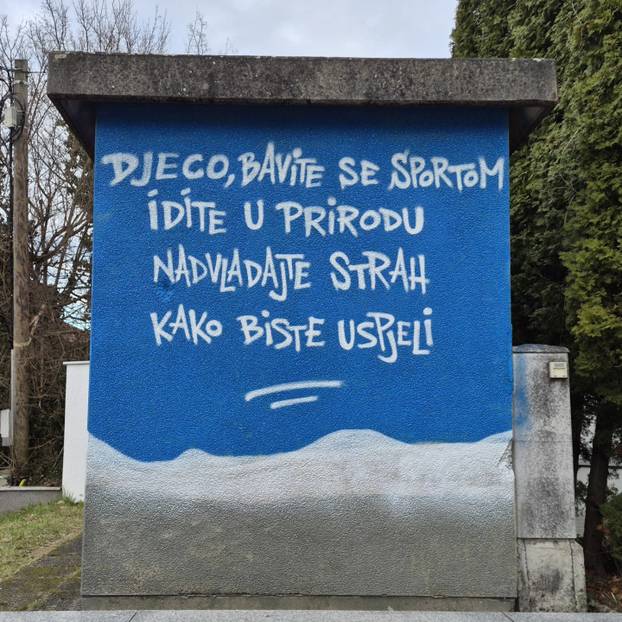 DJECO, BAVITE SE SPORTOM
IDITE U PRIRODU
NADVLADAJTE STRAH
KAKO BISTE USPJELI